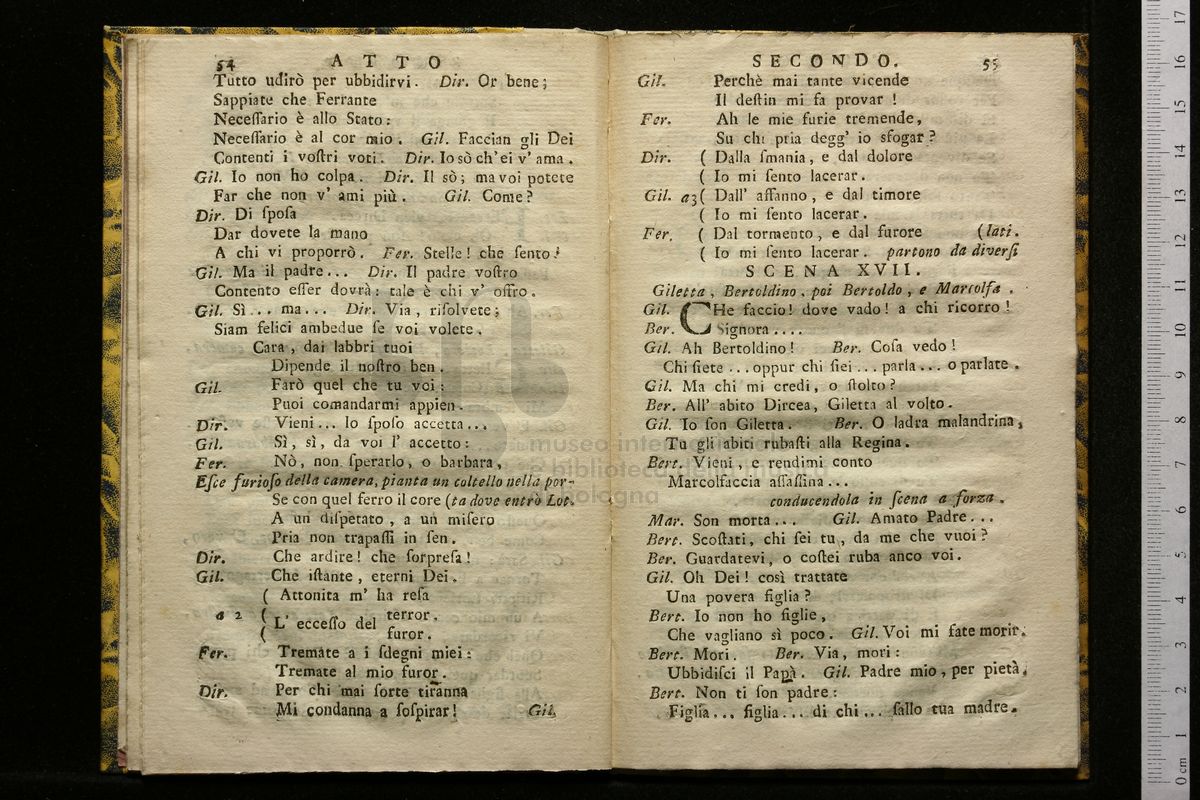 54 ATTO
Tutto udirò per ubbidirvi. Dir. Or bene;
Sappiate che Ferrante
Neceſſario è allo Stato:
Neceſſario è al cor mio. Gil. Faccian gli Dei
Contenti i voſtri voti. Dir. Io sò ch' ei v' ama.
Gil. Io non ho colpa. Dir. Il sò; ma voi potete
Far che non v' ami più. Gil. Come?
Dir. Di ſpoſa
Dar dovete la mano
A chi vi proporrò. Fer. Stelle! che ſento!
Gil. Ma il padre... Dir. Il padre voſtro
Contento eſſer dovrà: tale è chi v' offro.
Gil. Sì... ma... Dir. Via, riſolvete;
Siam felici ambedue ſe voi volete.
Cara, dai labbri tuoi
Dipende il noſtro ben.
Gil. Farò quel che tu voi:
Puoi comandarmi appien.
Dir. Vieni... lo ſpoſo accetta...
Gil. Sì, sì, da voi l' accetto:
Fer. Nò, non ſperarlo, o barbara,
Eſce furioſo della camera, pianta un coltello nella por-
Se con quel ferro il core (ta dove entrò Lot.
A un diſpetato, a un miſero
Pria non trapaſſi in ſen.
Dir. Che ardire! che ſorpreſa!
Gil. Che iſtante, eterni Dei.
( Attonita m' ha reſa
a 2 ( L' ecceſſo del terror.
( furor.
Fer. Tremate a i ſdegni miei:
Tremate al mio furor.
Dir. Per chi mai ſorte tiranna
Mi condanna a ſoſpirar!
Gil.
SECONDO. 55
Gil. Perchè mai tante vicende
Il deſtin mi fa provar!
Fer. Ah le mie furie tremende,
Su chi pria degg' io sfogar?
Dir. ( Dalla ſmania, e dal dolore
( Io mi ſento lacerar.
Gil. a3 ( Dall' affanno, e dal timore
( Io mi ſento lacerar.
Fer. ( Dal tormento, e dal furore (lati.
( Io mi ſento lacerar. partono da diverſi
SCENA XVII.
Giletta, Bertoldino, poi Bertoldo, e Marcolfa.
Gil. CHe faccio! dove vado! a chi ricorro!
Ber. Signora....
Gil. Ah Bertoldino! Ber. Coſa vedo!
Chi ſiete... oppur chi ſiei... parla... o parlate.
Gil. Ma chi mi credi, o ſtolto?
Ber. All' abito Dircea, Giletta al volto.
Gil. Io ſon Giletta. Ber. O ladra malandrina,
Tu gli abiti rubaſti alla Regina.
Bert. Vieni, e rendimi conto
Marcolfaccia aſſaſſina...
conducendola in ſcena a forza.
Mar. Son morta... Gil. Amato Padre...
Bert. Scoſtati, chi ſei tu, da me che vuoi?
Ber. Guardatevi, o coſtei ruba anco voi.
Gil. Oh Dei! così trattate
Una povera figlia?
Bert. Io non ho figlie,
Che vagliano sì poco. Gil. Voi mi fate morir.
Bert. Mori. Ber. Via, mori:
Ubbidiſci il Papà. Gil. Padre mio, per pietà.
Bert. Non ti ſon padre:
Figlia... figlia... di chi... ſallo tua madre.
museo internazionale
e biblioteca della musica
bologna
0 cm 1 2 3 4 5 6 7 8 9 10 11 12 13 14 15 16 17